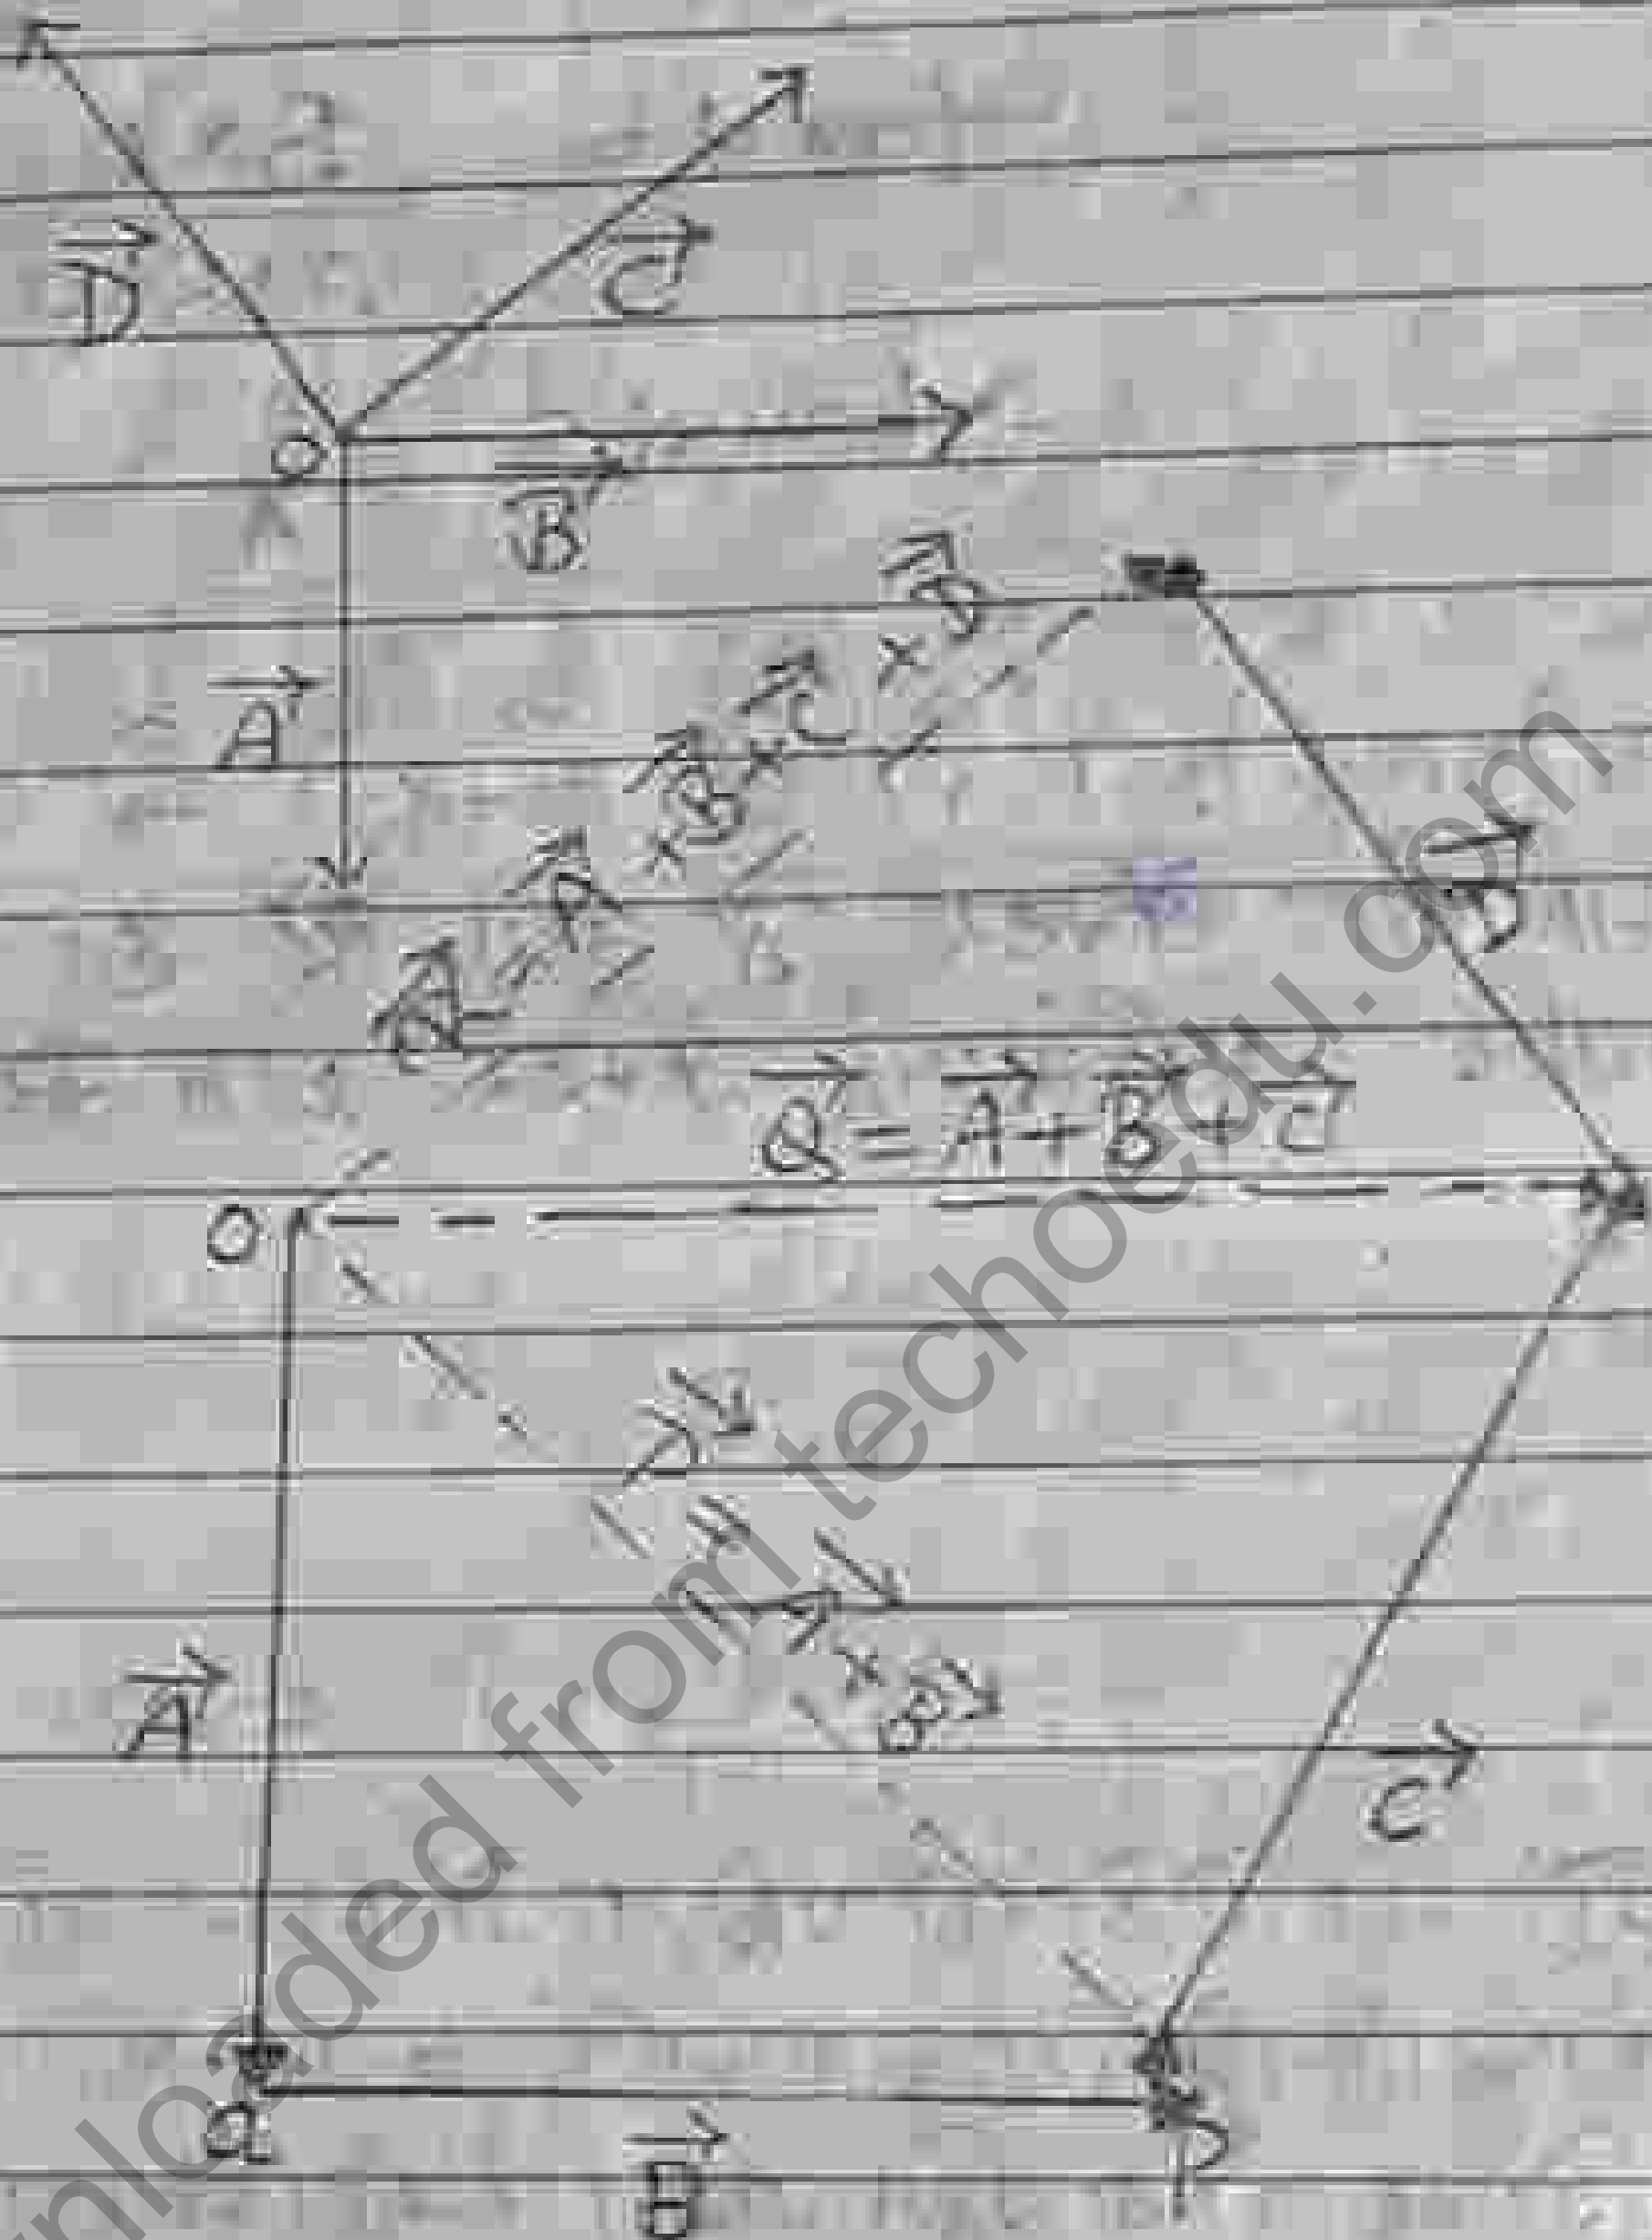 D
C
O
B
A
R = A + B + C + D
Q = A + B + C
O
D
P = A + B
A
C
a
B
P
Downloaded from techoedu.com